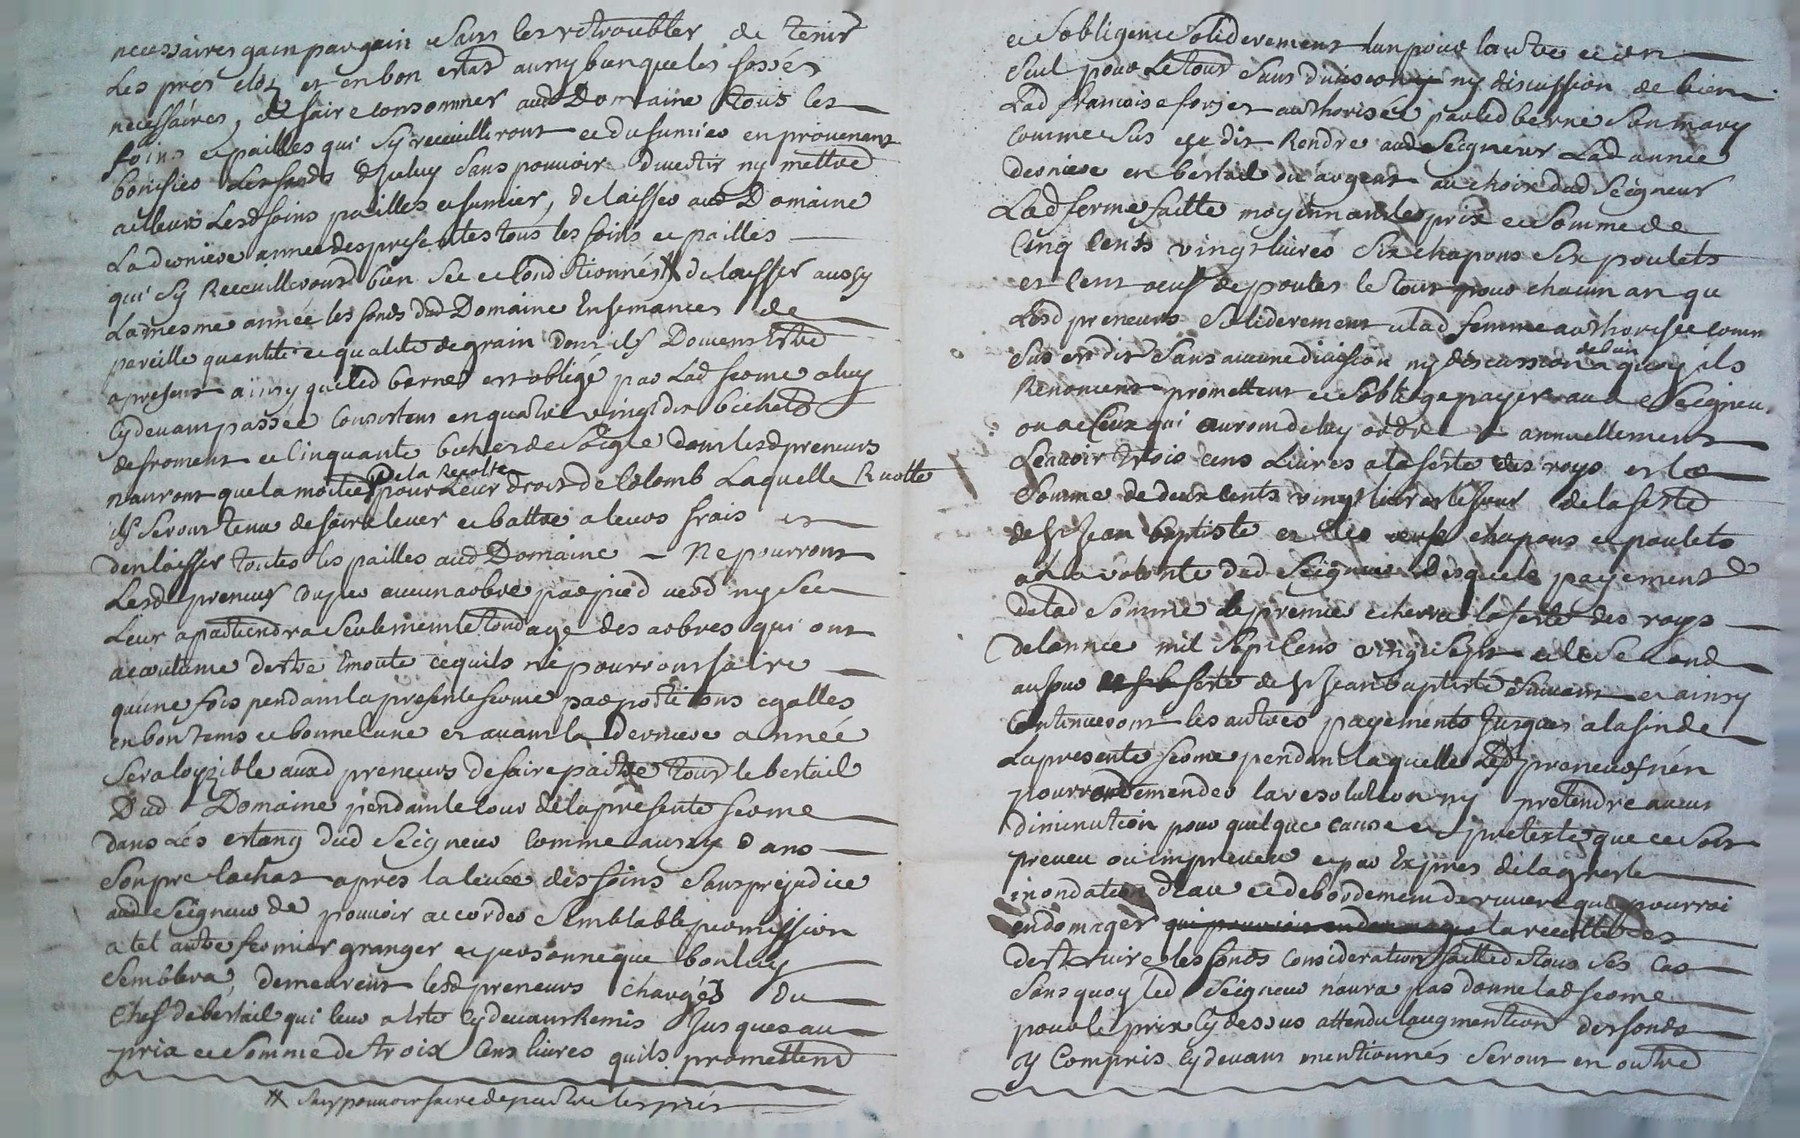 necessaires gain par gain et sans les retroubler de tenir
Les pres cloz et en bon estat aussy bien que les fossés
necessaires, de faire consommer aud Domaine tous les
foins et pailles qui sy recueilliront et du fumier en provenent
bonifier Les fonds d'jceluy sans pouvoir divertir ny mettre
ailleurs Lesd foins pailles et fumier, de laisser aud Domaine
La derniere année des presentes tous les foins et pailles
qui sy Receuilleront bien sec et Conditionnés # de laisser aussy
La mesme année les fonds dud Domaine Ensemances de
pareille quantité et qualité de grain Dont ils Doivent Estre
a present ainsy que led berned est obligé par Lad ferme a luy
Cy devant passée Consistans en quatre vingt dix bichets
de froment et Cinquante bichet de Seigle dont lesd preneurs
nauront que la moitié de la Recolte pour Leur droit de Colomb Laquelle Recolte
ils seront tenu de faire lever et battre a leurs frais et
den laisser toutes les pailles aud Domaine ~ Ne pourront
Lesd preneurs Couper aucun arbre par pied verd ny Sec
Leur apartiendra Seulement le Tondage des arbres qui ont
acoutume destre Emonté ce quils ne pourront faire
qu'une fois pendant la presente ferme par portions egalles
en bon tems et bonne lune et avant la Derniere année
Sera loyzible auxd preneurs de faire paitre tout le bestail
Dud Domaine pendant le cour de la presente ferme
Dans Les estang dud Seigneur Comme aussy Dans
Son pre lachat apres la levée des foins Sans prejudice
aud Seigneur de pouvoir accorder Semblable permission
a tel autre fermier granger et personne que bon luy
Semblera, demeurent lesd preneurs Chargés du
Chef de bestail qui leur a été Cy devant Remis Jusques au
prix et Somme de troix Cens livres quils promettend
# Sans pouvoir faire depaitre les prés
et Sobligent Soliderement lun pour lautre et un
Seul pour Le tout Sans division ny discussion de bien
Lad francoise forjet authorisée par led berne Son mary
Comme Sus est dit Rendre aud Seigneur Lad année
derniere en bestail ou argent au choix dud Seigneur
Lad ferme faitte moyennant le prix et Somme de
Cinq Cents vingt livres Six chapons Six poulets
et Cent oeuf de poules le tout pour chacun an que
Lesd preneurs Soliderement et lad femme authorisée comme
Sus est dit Sans aucune division ny discussion de bien a quoy ils
Renoncent promettent et Soblige payer aud Seigneur
ou a Ceux qui auront de luy ordre annuellement
Scavoir trois Cens Livres a la feste des roys et la
Somme de deux Cents vingt livres le jour de la feste
de St Jean baptiste et les oeufs chapons et poulets
a la volonté dud Seigneur desquels payement
de lad Somme le premier echerra la feste des roys
De lannée mil Sept Cens vingt Sept et le Second
au jour feste de St Jean baptiste Suivant et ainsy
Continueront les autres payements jusques a la fin de
La presente ferme pendant laquelle Lesd preneurs n'en
pourront demender la resolution ny pretendre aucune
diminution pour quelque cause et pretexte que ce Soit
preveu ou impreveu et par Expres de la gresle
inondation d'eau et debordement de riviere qui pourroi
endomager la recolte des
destruire les fonds Consideration faitte de tous Ses Cas
Sans quoy led Seigneur n'aura pas donne lad ferme
pour le prix Cy dessus attendu laugmention des fonds
Cy Compris Cy devant mentionnés Seront en outre